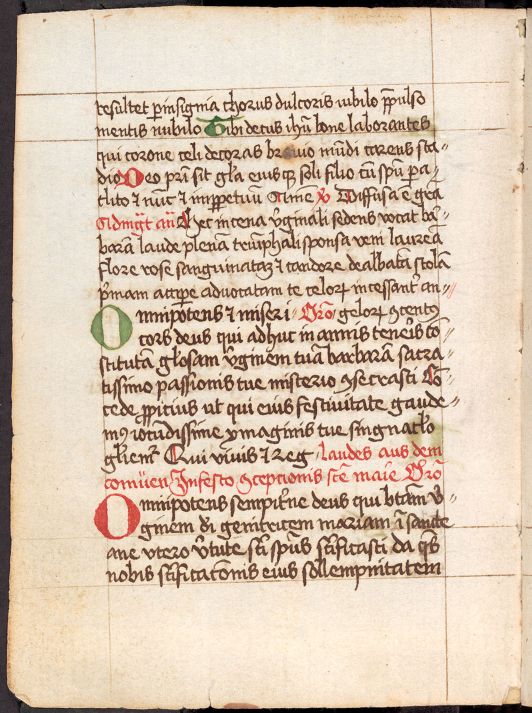 resultet p insignia chorus dulcoris iubilo ppulso
mentis nubilo Tibi decus ihu bone laborantes
qui corone celi decoras brauio mudi carens sta
dio Deo pri sit gla eiusq soli filio cu spu pa
clito t nuc t inppetuu Ame v Diffusa e gra
Ad mgt an Hec in cena vginali sedens vocat bar
bara laude plena triuphali sponsa veni laurea
flore rose sanguinata t candore dealbata stola
pmam accipe aduocatam te celor incessant an
Omnipotens t miseri Oro gelor concento
cors deus qui adhuc in annis teneris co
stituta glosam vginem tua barbaram sacra
tissimo passionis tue misterio consecrasti Co
cede ppitius ut qui eius festiuitate gaude
m iocudissime ymaginis tue singnaclo
Qui viuis t reg laudes aus dem
comuen In festo conceptionis sce marie Oro
Omnipotens sempitne deus qui btam v
ginem di genitricem mariam i sancte
ane vtero vtute sci spus scificasti da qs
nobis scificaconis eius sollempnitatem